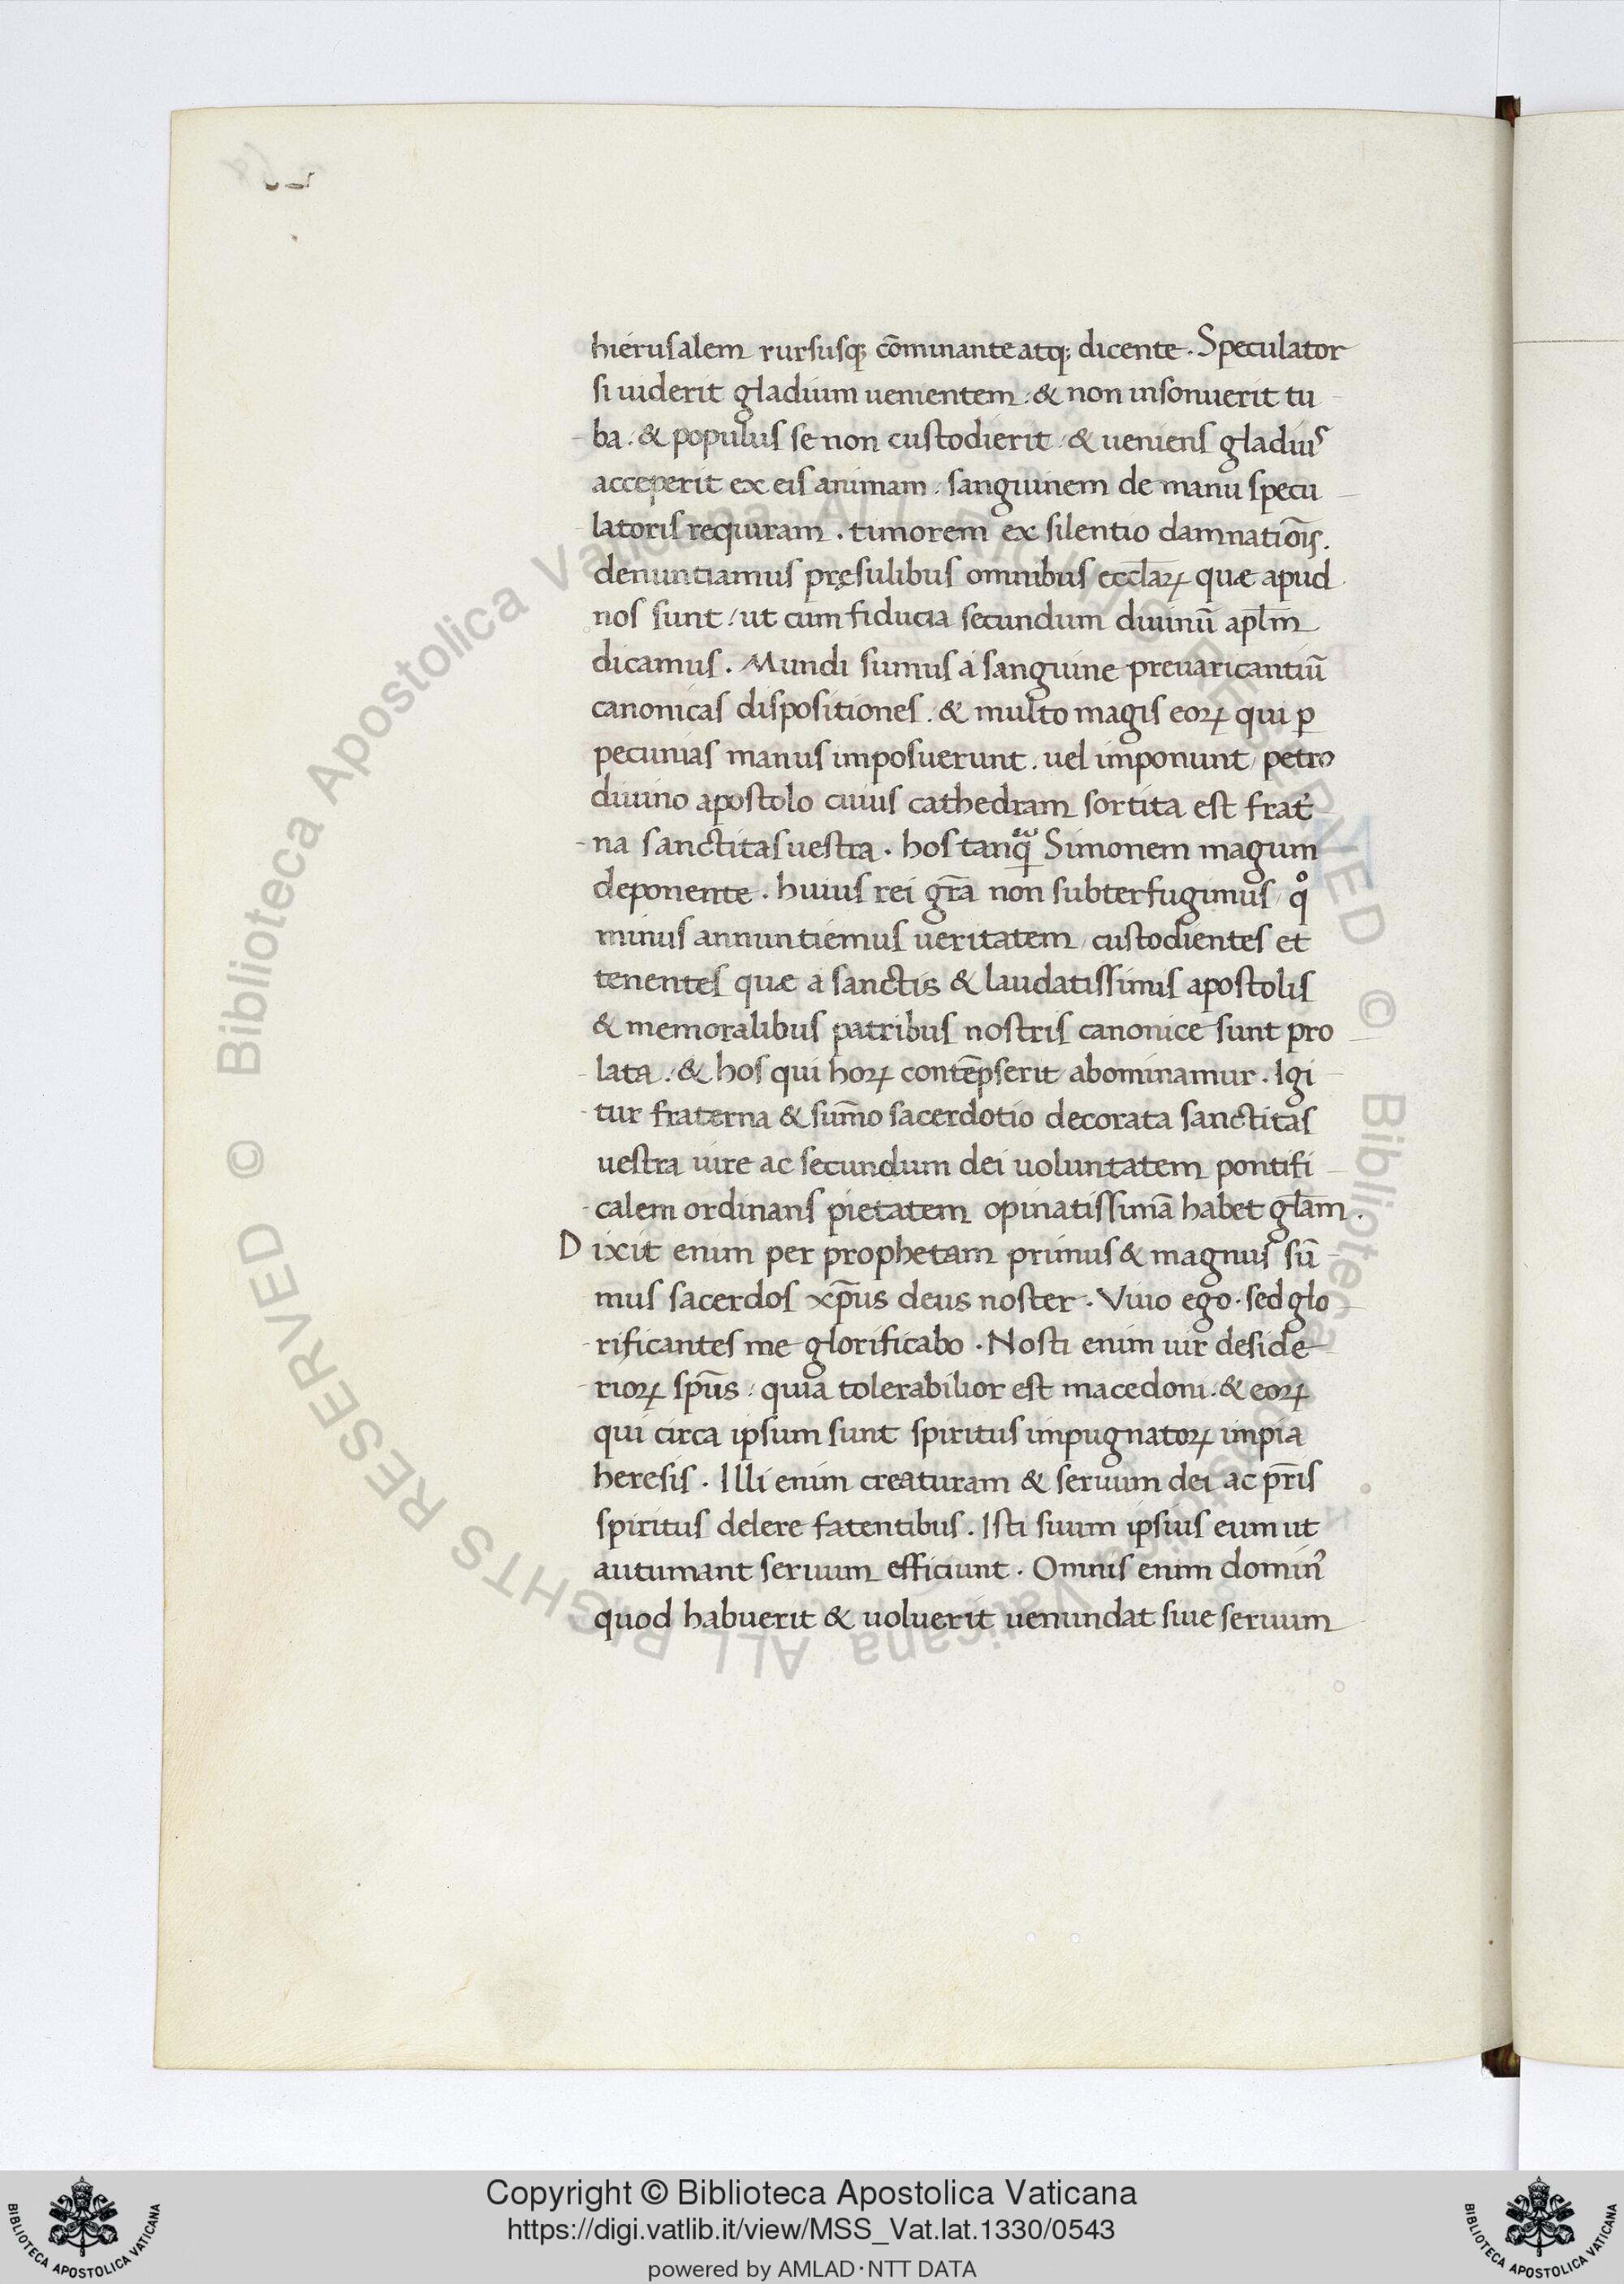 hierusalem rursusq; cōminante atq; dicente. Speculator
si uiderit gladium uenientem: & non insonuerit tu
ba: & populus se non custodierit: & ueniens gladius
acceperit ex eis animam: sanguinem de manu specu
latoris requiram. timorem ex silentio damnatiōis.
denuntiamus pręsulibus omnibus eccl̄aꝝ quæ apud
nos sunt: ut cum fiducia secundum diuinū apl̄m
dicamus. Mundi sumus a sanguine preuaricantiū
canonicas dispositiones. & multo magis eoꝝ qui ꝑ
pecunias manus imposuerunt. uel imponunt: petro
diuino apostolo cuius cathedram sortita est frat̉
na sanctitas uestra. hos tanqͣ Simonem magum
deponente. huius rei gr̄a non subterfugimus: qͦ
minus annuntiemus ueritatem: custodientes et
tenentes quæ a sanctis & laudatissimis apostolis
& memoralibus patribus nostris canonice sunt pro
lata: & hos qui hoꝝ contēpserit abominamur. Igi
tur fraterna & sum̄o sacerdotio decorata sanctitas
uestra iure ac secundum dei uoluntatem pontifi
calem ordinans pietatem opinatissimā habet gl̄am.
Dixit enim per prophetam primus & magnus sū
mus sacerdos xp̄us deus noster. Viuo ego. sed glo
rificantes me glorificabo. Nosti enim uir deside
rioꝝ sp̄us: quia tolerabilior est macedoni. & eoꝝ
qui circa ipsum sunt spiritus impugnatoꝝ impia
heresis. Illi enim creaturam & seruum dei ac pr̄is
spiritus delere fatentibus. Isti suum ipsius eum ut
autumant seruum efficiunt. Omnis enim dominꝰ
quod habuerit & uoluerit uenundat siue seruum
© Biblioteca Apostolica Vaticana ALL RIGHTS RESERVED © Biblioteca Apostolica Vaticana ALL RIGHTS RESERVED
Copyright © Biblioteca Apostolica Vaticana
https://digi.vatlib.it/view/MSS_Vat.lat.1330/0543
powered by AMLAD·NTT DATA
BIBLIOTECA APOSTOLICA VATICANA
BIBLIOTECA APOSTOLICA VATICANA